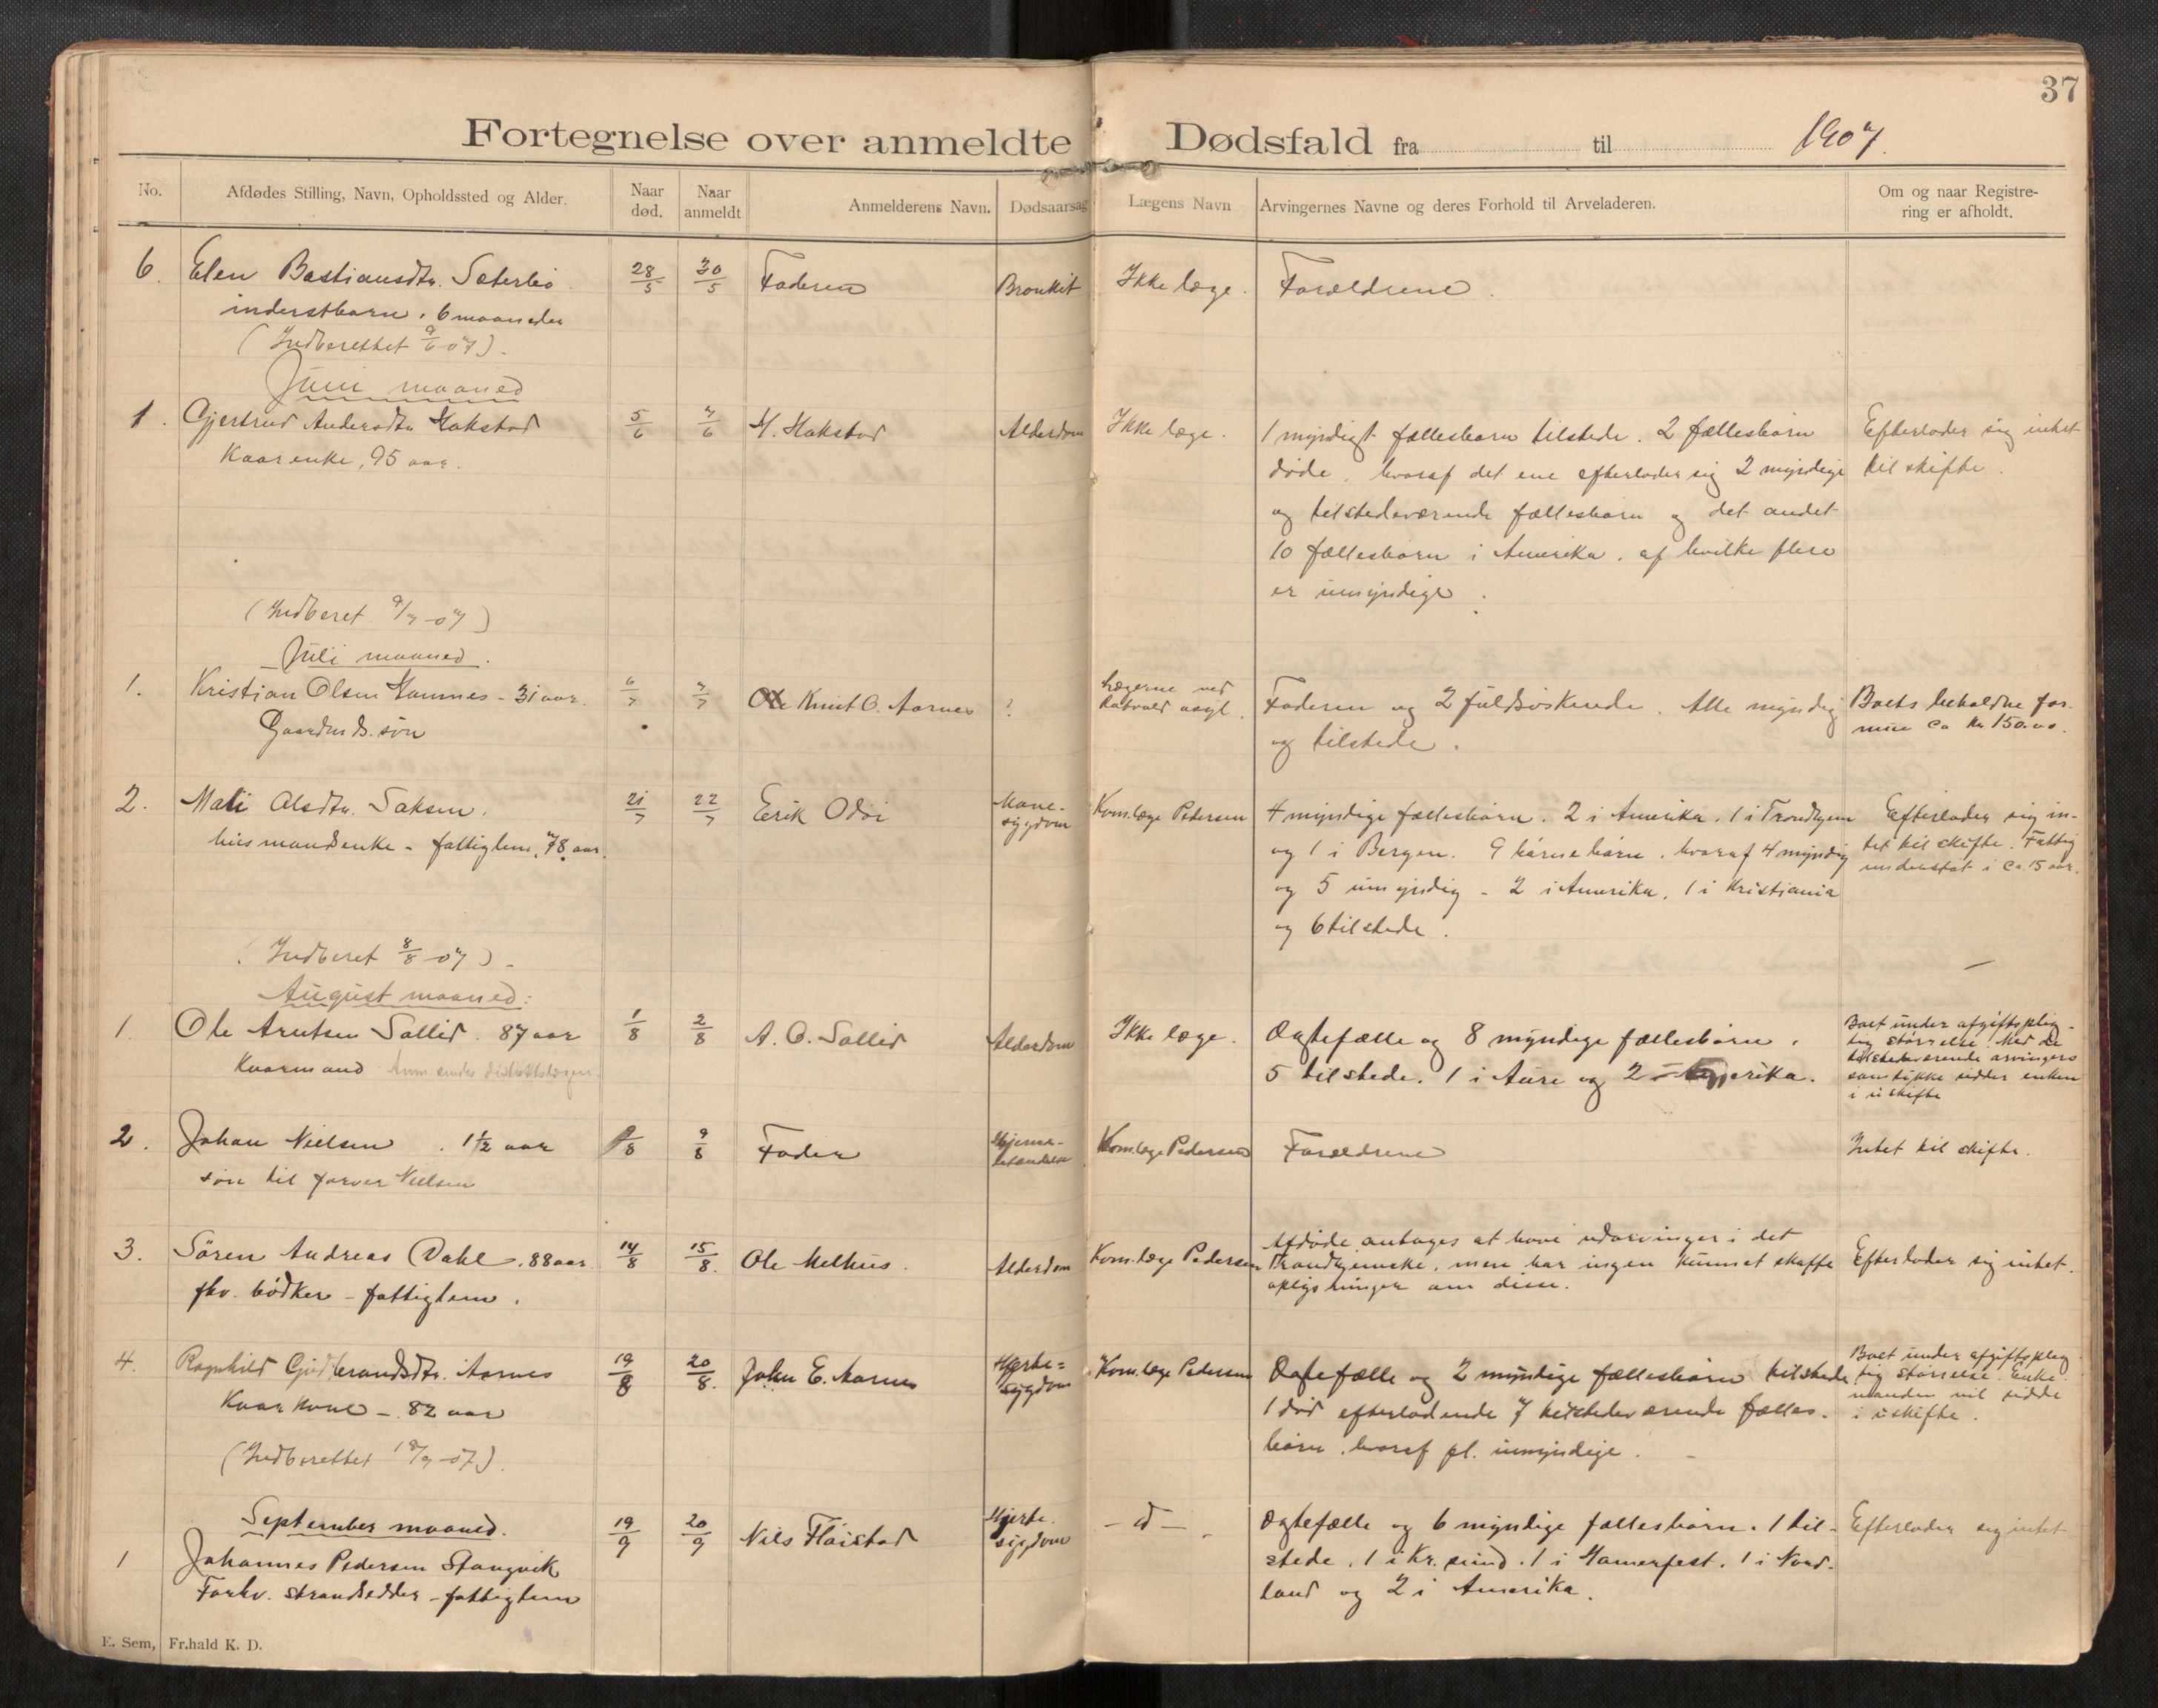 37
Fortegnelse over anmeldte Dødsfald fra til 1907.
No. Afdødes Stilling, Navn, Opholdssted og Alder. Naar død. Naar anmeldt Anmelderens Navn. Dødsaarsag Lægens Navn Arvingernes Navne og deres Forhold til Arveladeren. Om og naar Registrering er afholdt.
6. Elen Bastiansdtr. Sæterbö 28/5 30/5 Faderen Bronkit Ikke læge. Forældrene.
inderstbarn. 6 maaneder
(Indberettet 9/6 07).
Juni maaned
1. Gjertrud Andersdtr Hakstad 5/6 7/6 H. Hakstad Alderdom Ikke læge.
Kaarenke, 95 aar.
1 myndigt fællesbarn tilstede. 2 fællesbörn
döde, hvoraf det ene efterlader sig 2 myndige
og tilstedeværende fællesbörn og det andet
10 fællesbörn i Amerika, af hvilke flere
er umyndige.
Efterlader sig intet
til skifte.
(Indberet 9/7 -07)
Juli maaned.
1. Kristian Olsen Hamnes - 31 aar. 6/7 7/7 Knut O. Aarnes ?
Gaardmds. sön
Lægerne ved
Rotvold asyl.
Faderen og 2 fuldsöskende. Alle myndig
og tilstede.
Boets beholdne for-
mue ca kr. 150.00.
2. Mali Olsdtr. Saksen. 21/7 22/7 Erik Odöi
husmandsenke - fattiglem, 78 aar.
Mave-
sygdom
Kom.læge Pedersen
4 myndige fællesbörn. 2 i Amerika. 1 i Trondhjem
og 1 i Bergen. 9 börnebörn, hvoraf 4 myndig
og 5 umyndig - 2 i Amerika, 1 i Kristiania
og 6 tilstede.
Efterlader sig in-
tet til skifte. Fattig
understöt i ca. 15 aar.
(Indberet 8/8 -07).
August maaned:
1. Ole Arntsen Sollid. 87 aar 1/8 2/8 A. O. Sollid Alderdom Ikke læge.
Kaarmand
Ægtefælle og 8 myndige fællesbörn.
5 tilstede. 1 i Aure og 2 i Amerika.
Boet under afgiftsplig-
tig störrelse. Med de
tilstedeværende arvingers
samtykke sidder enken
i uskifte
2. Johan Nielsen. 1½ aar /8 9/8 Fader
sön til farver Nielsen
Hjerne-
betændelse
Kom.læge Pedersen Forældrene Intet til skifte.
3. Sören Andreas Dahl. 88 aar 14/8 15/8. Ole Melhus. Alderdom Kom. læge Pedersen
fhv. bödker - fattiglem.
Afdöde antages at have udarvinger i det
Trondhjemske, men har ingen kunnet skaffe
oplysninger om disse.
Efterlader sig intet.
4. Ragnhild Gudbrandsdtr. Aarnes 19/8 20/8. John E. Aarnes
Kaarkone - 82 aar
Hjerte=
sygdom
Kom.læge Pedersen
Ægtefælle og 2 myndige fællesbörn tilstede
1 död efterladende 7 tilstedeværende fælles-
börn, hvoraf fl. umyndige.
Boet under afgiftsplig
tig störrelse. Enke
manden vil sidde
i uskifte.
(Indberettet /9 -07).
September maaned.
1 Johannes Pedersen Stangvik 19/9 20/9 Nils Flöistad
Forhv. strandsidder - fattiglem
Hjerte.
sygdom
- d -
Ægtefælle og 6 myndige fællesbörn. 1 til-
stede. 1 i Kr.sund. 1 i Hamerfest. 1 i Nord-
land og 2 i Amerika.
Efterlader sig intet
E. Sem, Fr.hald K. D.